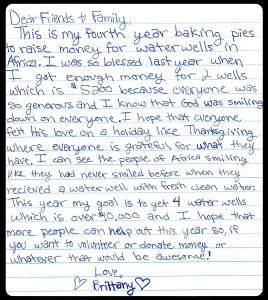 Dear Friends & Family,
This is my fourth year baking pies
to raise money for water wells in
Africa. I was so blessed last year when
I got enough money for 2 wells
which is $5200 because everyone was
so generous and I know that God was smiling
down on everyone. I hope that everyone
felt His love on a holiday like Thanksgiving
where everyone is grateful for what they
have. I can see the people of Africa smiling
like they had never smiled before when they
recieved a water well with fresh clean water.
This year my goal is to get 4 water wells
which is over $10,000 and I hope that
more people can help out this year so, if
you want to volunteer or donate money or
whatever that would be awesome!
Love,
Brittany